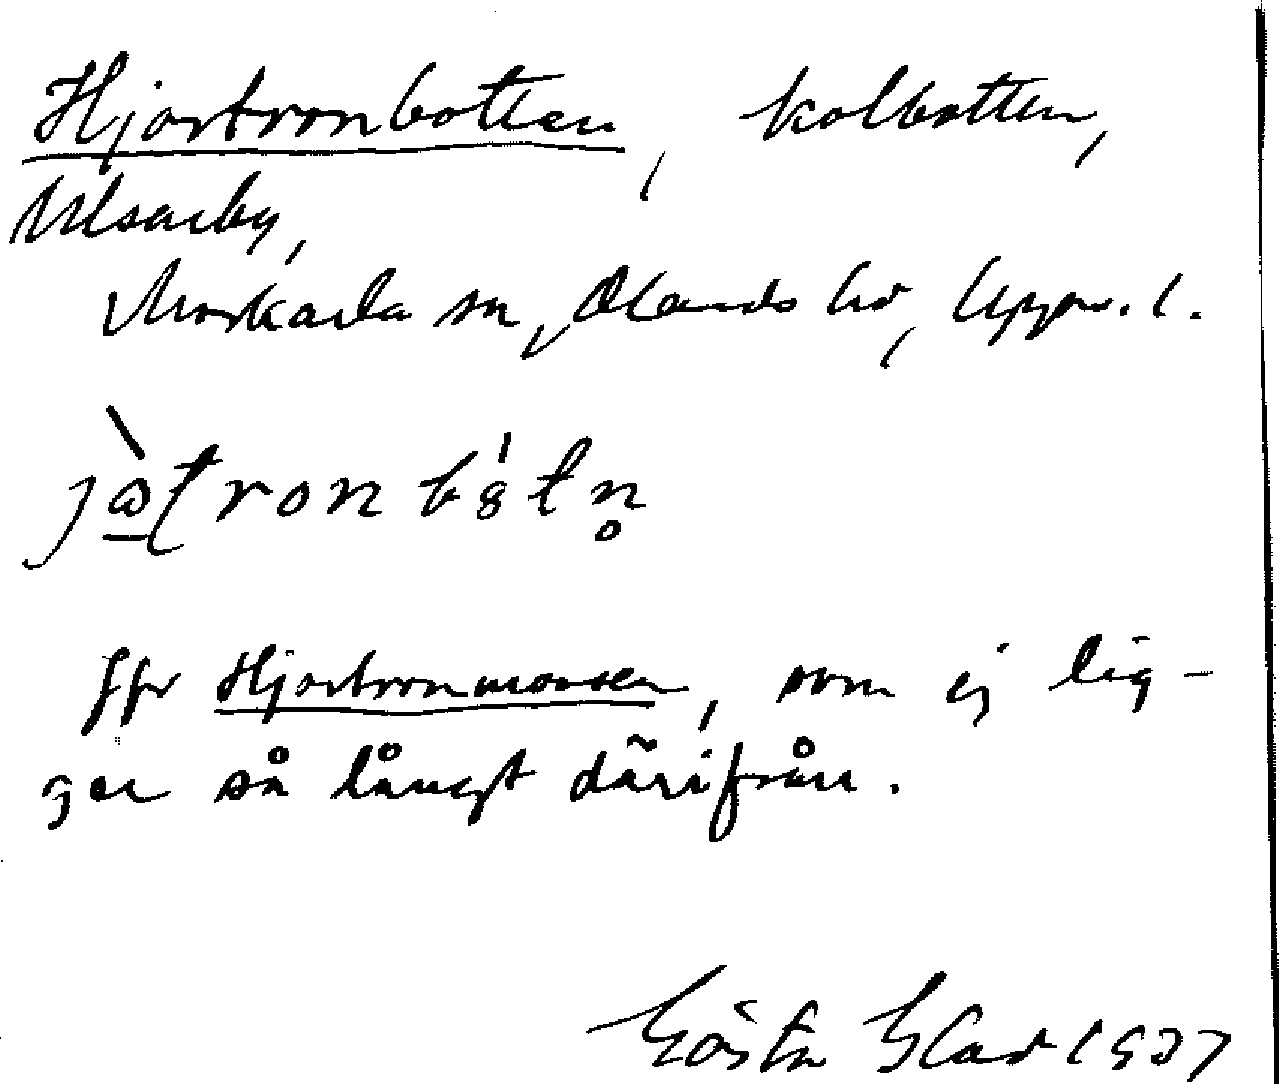 Hjortronbotten, kolbotten,
Ulsarby,
Morkarla sn, Olands hd, Upps. l.
jὼ̲tronbȣ́tn̥
Jfr Hjortronmossen, som ej lig-
ger så långt därifrån.
Gösta Blad 1937